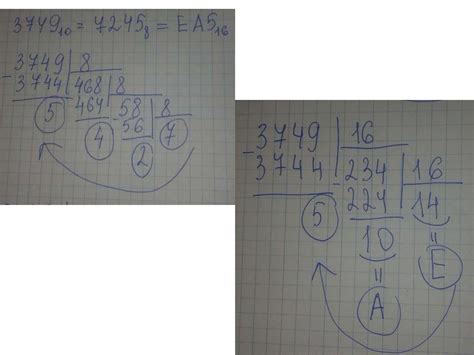 3749₁₀ = 7245₈ = EA5₁₆
3749 | 8
- 3744 | 468 | 8
5 464 - 58 | 8
4 56 7
2
- 3749 | 16
3744 - 234 | 16
5 224 14
10 =
= E
A